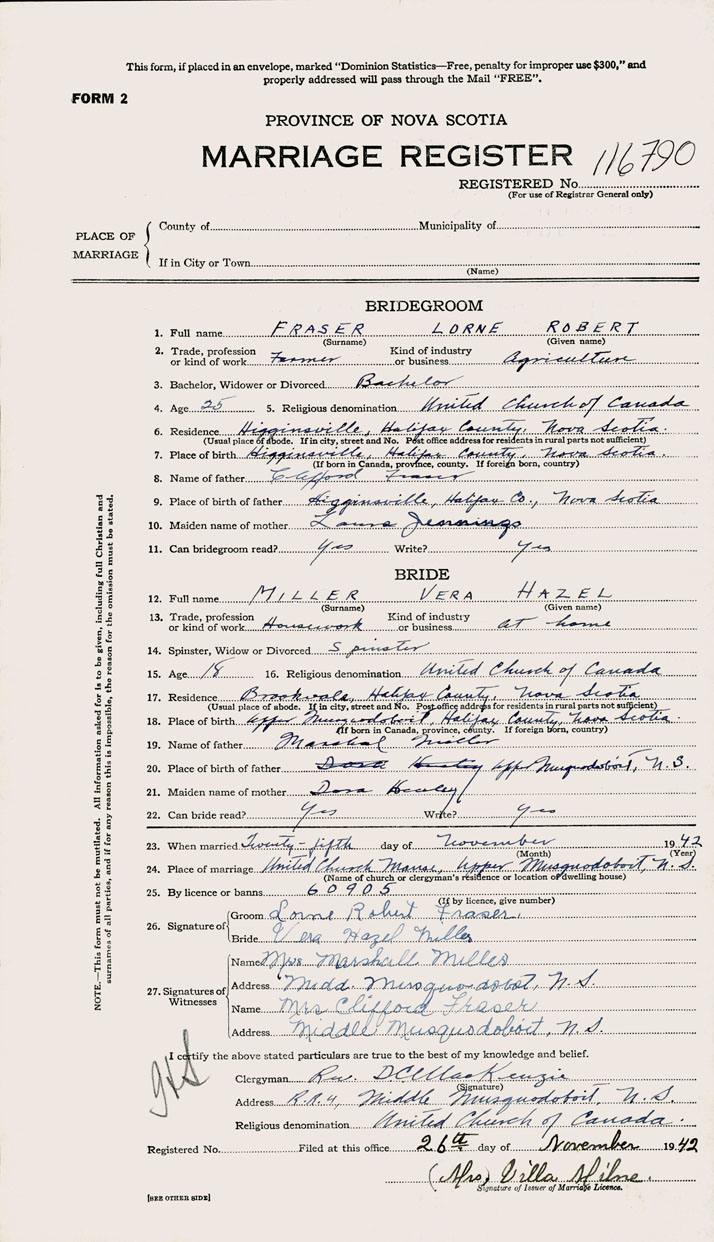 This form, if placed in an envelope, marked "Dominion Statistics—Free, penalty for improper use $300," and
properly addressed will pass through the Mail "FREE".
FORM 2
PROVINCE OF NOVA SCOTIA
MARRIAGE REGISTER 116790
REGISTERED No.
(For use of Registrar General only)
PLACE OF MARRIAGE
County of Municipality of
If in City or Town
(Name)
BRIDEGROOM
1. Full name FRASER LORNE ROBERT
(Surname) (Given name)
2. Trade, profession or kind of work Farmer Kind of industry or business Agriculture
3. Bachelor, Widower or Divorced Bachelor
4. Age 25 5. Religious denomination United Church of Canada
6. Residence Higginsville, Halifax County, Nova Scotia.
(Usual place of abode. If in city, street and No. Post office address for residents in rural parts not sufficient)
7. Place of birth Higginsville, Halifax County, Nova Scotia.
(If born in Canada, province, county. If foreign born, country)
8. Name of father Clifford Fraser
9. Place of birth of father Higginsville, Halifax Co., Nova Scotia
10. Maiden name of mother Laura Jennings
11. Can bridegroom read? Yes Write? Yes
BRIDE
12. Full name MILLER VERA HAZEL
(Surname) (Given name)
13. Trade, profession or kind of work Housework Kind of industry or business at home
14. Spinster, Widow or Divorced Spinster
15. Age 18 16. Religious denomination United Church of Canada
17. Residence Brookvale, Halifax County, Nova Scotia
(Usual place of abode. If in city, street and No. Post office address for residents in rural parts not sufficient)
18. Place of birth Upper Musquodoboit, Halifax County, Nova Scotia.
(If born in Canada, province, county. If foreign born, country)
19. Name of father Marshal Miller
20. Place of birth of father Dora Upp. Musquodoboit, N.S.
21. Maiden name of mother Dora Henley
22. Can bride read? Yes Write? Yes
23. When married Twenty-fifth day of November 1942
(Month) (Year)
24. Place of marriage United Church Manse, Upper Musquodoboit, N.S.
(Name of church or clergyman's residence or location of dwelling house)
25. By licence or banns 60905
(If by licence, give number)
26. Signature of
Groom Lorne Robert Fraser.
Bride Vera Hazel Miller
27. Signatures of Witnesses
Name Mrs Marshall Miller
Address Midd. Musquodobot, N.S.
Name Mrs Clifford Fraser
Address Middle Musquodoboit, N.S.
I certify the above stated particulars are true to the best of my knowledge and belief.
Clergyman Rev. D C MacKenzie
(Signature)
Address R.R.4, Middle Musquodoboit, N.S.
Religious denomination United Church of Canada.
Registered No. Filed at this office 26th day of November 1942
(Mrs) Villa Milne.
Signature of Issuer of Marriage Licence.
[SEE OTHER SIDE]
NOTE.—This form must not be mutilated. All information asked for is to be given, including full Christian and
surnames of all parties, and if for any reason this is impossible, the reason for the omission must be stated.